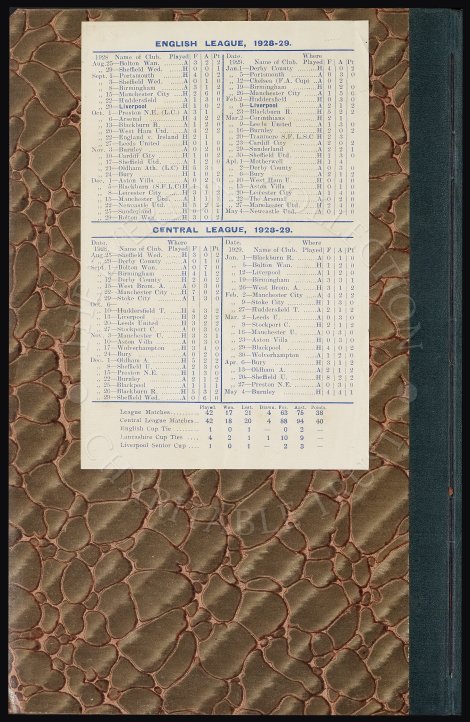 ENGLISH LEAGUE, 1928-29.
1928 Name of Club. Played F A Pt
Aug. 25—Bolton Wan. A 3 2 2
„ 29—Sheffield Wed. H 0 0 1
Sept. 1—Portsmouth H 4 0 2
„ 3—Sheffield Wed. A 0 1 0
„ 8—Birmingham A 3 1 2
„ 15—Manchester City H 2 6 0
„ 22—Huddersfield A 1 3 0
„ 29—Liverpool H 1 0 2
Oct. 1—Preston N.E. (L.C.) A 3 1
„ 6—Arsenal H 4 2 2
„ 13—Blackburn R. A 1 2 0
„ 20—West Ham Utd. A 4 2 2
„ 22—England v. Ireland H 2 1
„ 27—Leeds United H 0 1 0
Nov. 3—Burnley A 0 2 0
„ 10—Cardiff City H 1 0 2
„ 17—Sheffield Utd. A 1 2 0
Oldham Ath. (L.C.)
„ 24—Bury H 1 0 2
Dec. 1—Aston Villa A 0 2 0
„ 5—Blackburn (S.F.L.C.) H
„ 8—Leicester City H 3 1 2
„ 15—Manchester Utd. A 1 1 1
„ 22—Newcastle Utd. H 5 2 2
„ 25—Sunderland H 0 0 1
„ 29—Bolton Wan. H 3 0 2
Date. Where
1929. Name of Club. Played F A Pt
Jan. 1—Derby County H 4 0 2
„ 5—Portsmouth A 0 3 0
„ 12—Chelsea (F.A. Cup) A 0 2
„ 19—Birmingham H 0 2 0
„ 26—Manchester City A 1 5 0
Feb. 2—Huddersfield H 0 3 0
„ 9—Liverpool A 2 1 2
„ 23—Blackburn R. H 5 2 2
Mar. 2—Corinthians H 2 1
„ 9—Leeds United A 1 3 0
„ 16—Burnley H 2 0 2
Tranmere S.F. L.S.C. H 2 3
„ 23—Cardiff City A 2 0 2
„ 29—Sunderland A 2 2 1
„ 30—Sheffield Utd. H 1 3 0
Apl. 1—Motherwell H 1 4
Derby County A
„ 6—Bury A 2 1 2
„ 10—West Ham U. H 0 4 0
„ 13—Aston Villa H 0 1 0
Leicester City A 1 4 0
„ 22—The Arsenal A 0 2 0
„ 27—Manchester Utd. H 2 4 0
May 4—Newcastle Utd. A 0 2 0
CENTRAL LEAGUE, 1928-29.
Date. Where
1928. Name of Club. Played F A Pt
Aug. 25—Sheffield Wed. H 3 0 2
„ 29—Derby County A 0 1 0
Sept. 1—Bolton Wan. A 0 7 0
„ 8—Birmingham H 4 1 2
Derby County H
„ 15—West Brom. A. A 0 3 0
„ 22—Manchester City H 7 0 2
„ 29—Stoke City A 1 3 0
Oct. 6—
„ 10—Huddersfield T. H 4 3 2
Liverpool H 3 2 2
„ 20—Leeds United H 3 2 2
„ 27—Stockport C. A 0 3 0
Nov. 3—Manchester U. H 3 3 1
„ 10—Aston Villa A 0 5 0
„ 17—Wolverhampton H 3 4 0
„ 24—Bury A 0 2 0
Dec. 1—Oldham A. H 5 2 2
„ 8—Sheffield U. A 2 3 0
„ 15—Preston N.E. H 1 3 0
„ 22—Burnley A 2 1 2
„ 25—Blackpool A 1 1 1
„ 26—Blackburn R. H 5 3 2
„ 29—Sheffield Wed. A 0 6 0
Date. Where
1929. Name of Club. Played F A Pt
Jan. 1—Blackburn R. A 0 1 0
„ 5—Bolton Wan. H 1 2 0
„ 12—Liverpool A 1 2 0
„ 19—Birmingham A 3 3 1
„ 26—West Brom. A. H 3 1 2
Feb. 2—Manchester City A 4 2 2
„ 9—Stoke City H 1 3 0
Huddersfield T. A 2 1 2
Mar. 2—Leeds U. A 0 3 0
„ 9—Stockport C. H 2 1 2
„ 16—Manchester U. A 0 3 0
„ 23—Aston Villa H 0 3 0
„ 29—Blackpool H 4 0 2
„ 30—Wolverhampton A 1 2 0
Apr. 6—Bury H 3 1 2
„ 13—Oldham A. A 2 1 2
„ 20—Sheffield U. H 8 2 2
„ 27—Preston N.E. A 0 3 0
May 4—Burnley H 4 4 1
Played. Won. Lost. Drawn. For. Agst. Points.
League Matches 42 17 21 4 63 75 38
Central League Matches 42 18 20 4 88 94 40
English Cup Tie 1 0 1 — 0 2 —
Lancashire Cup Ties 4 2 1 1 10 9 —
Liverpool Senior Cup 1 0 1 — 2 3 —